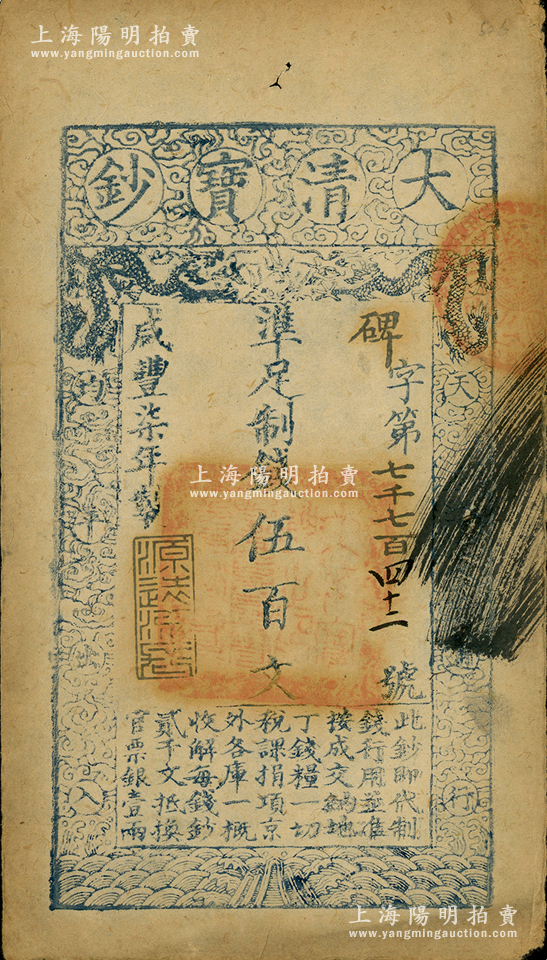 上海陽明拍賣
www.yangmingauction.com
大清寶鈔
天
通
行
均
平
出
入
碑字第七千七百四十二號
準足制錢伍百文
咸豐柒年製
源遠流長
上海陽明拍賣
www.yangmingauction.com
此鈔即代制
錢行用並准
按成交納地
丁錢糧一切
稅課捐項京
外各庫一概
收解每錢鈔
貳千文抵換
官票銀壹兩
上海陽明拍賣
www.yangmingauction.com